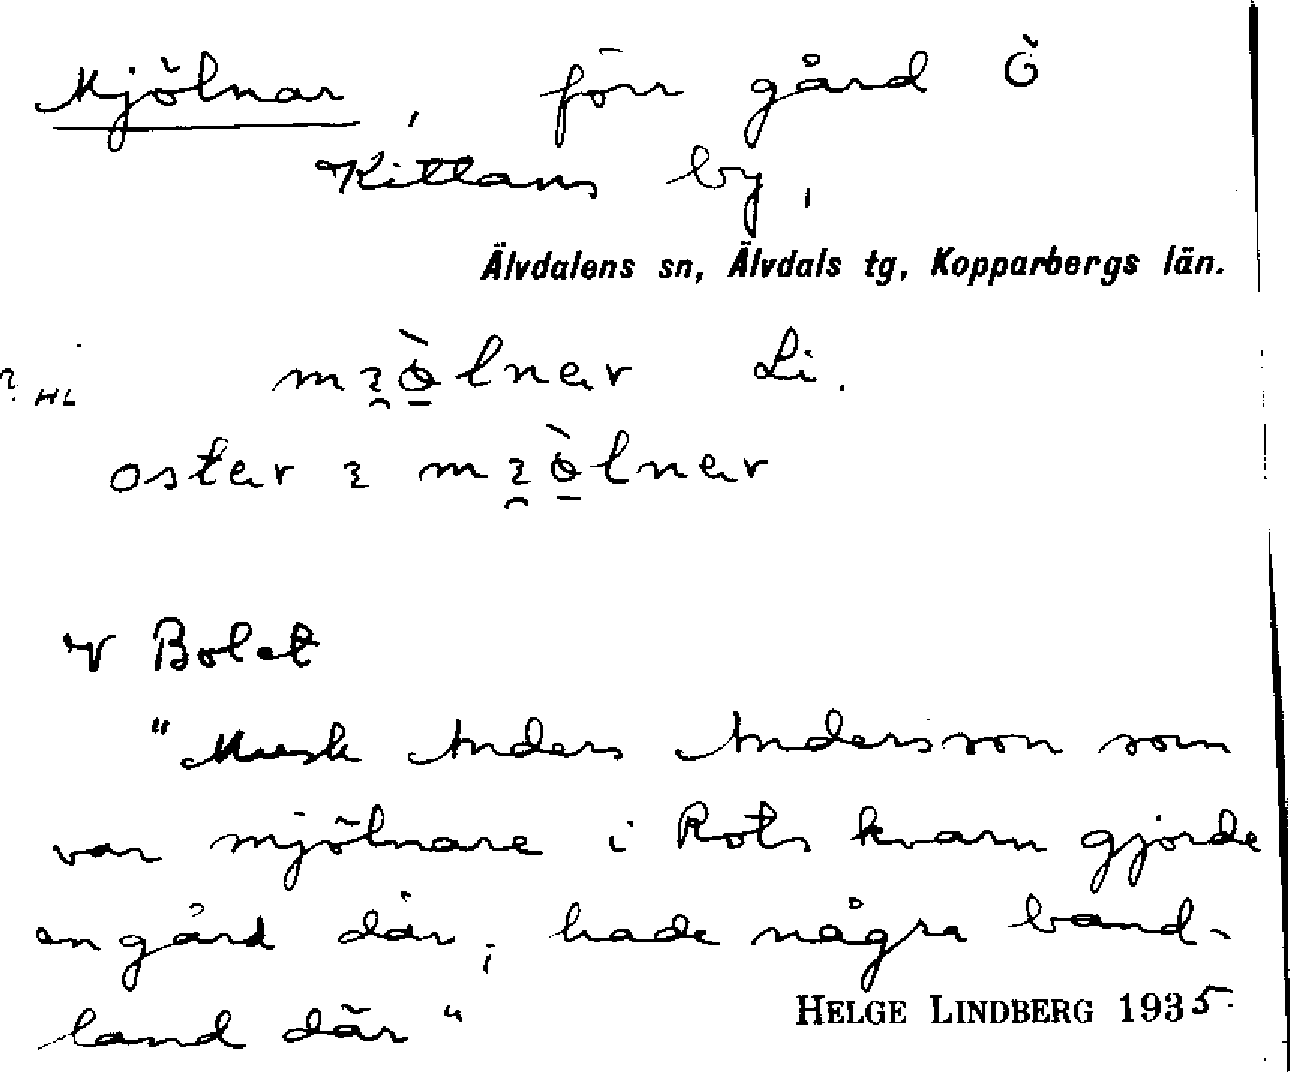 Mjölnar, förr gård Ö
Kittans by,
Älvdalens sn, Älvdals tg, Kopparbergs län.
HL Li.
V Bolet
"Musk Anders Andersson som
var mjölnare i Rots kvarn gjorde
en gård där, hade några band-
land där"
HELGE LINDBERG 1935